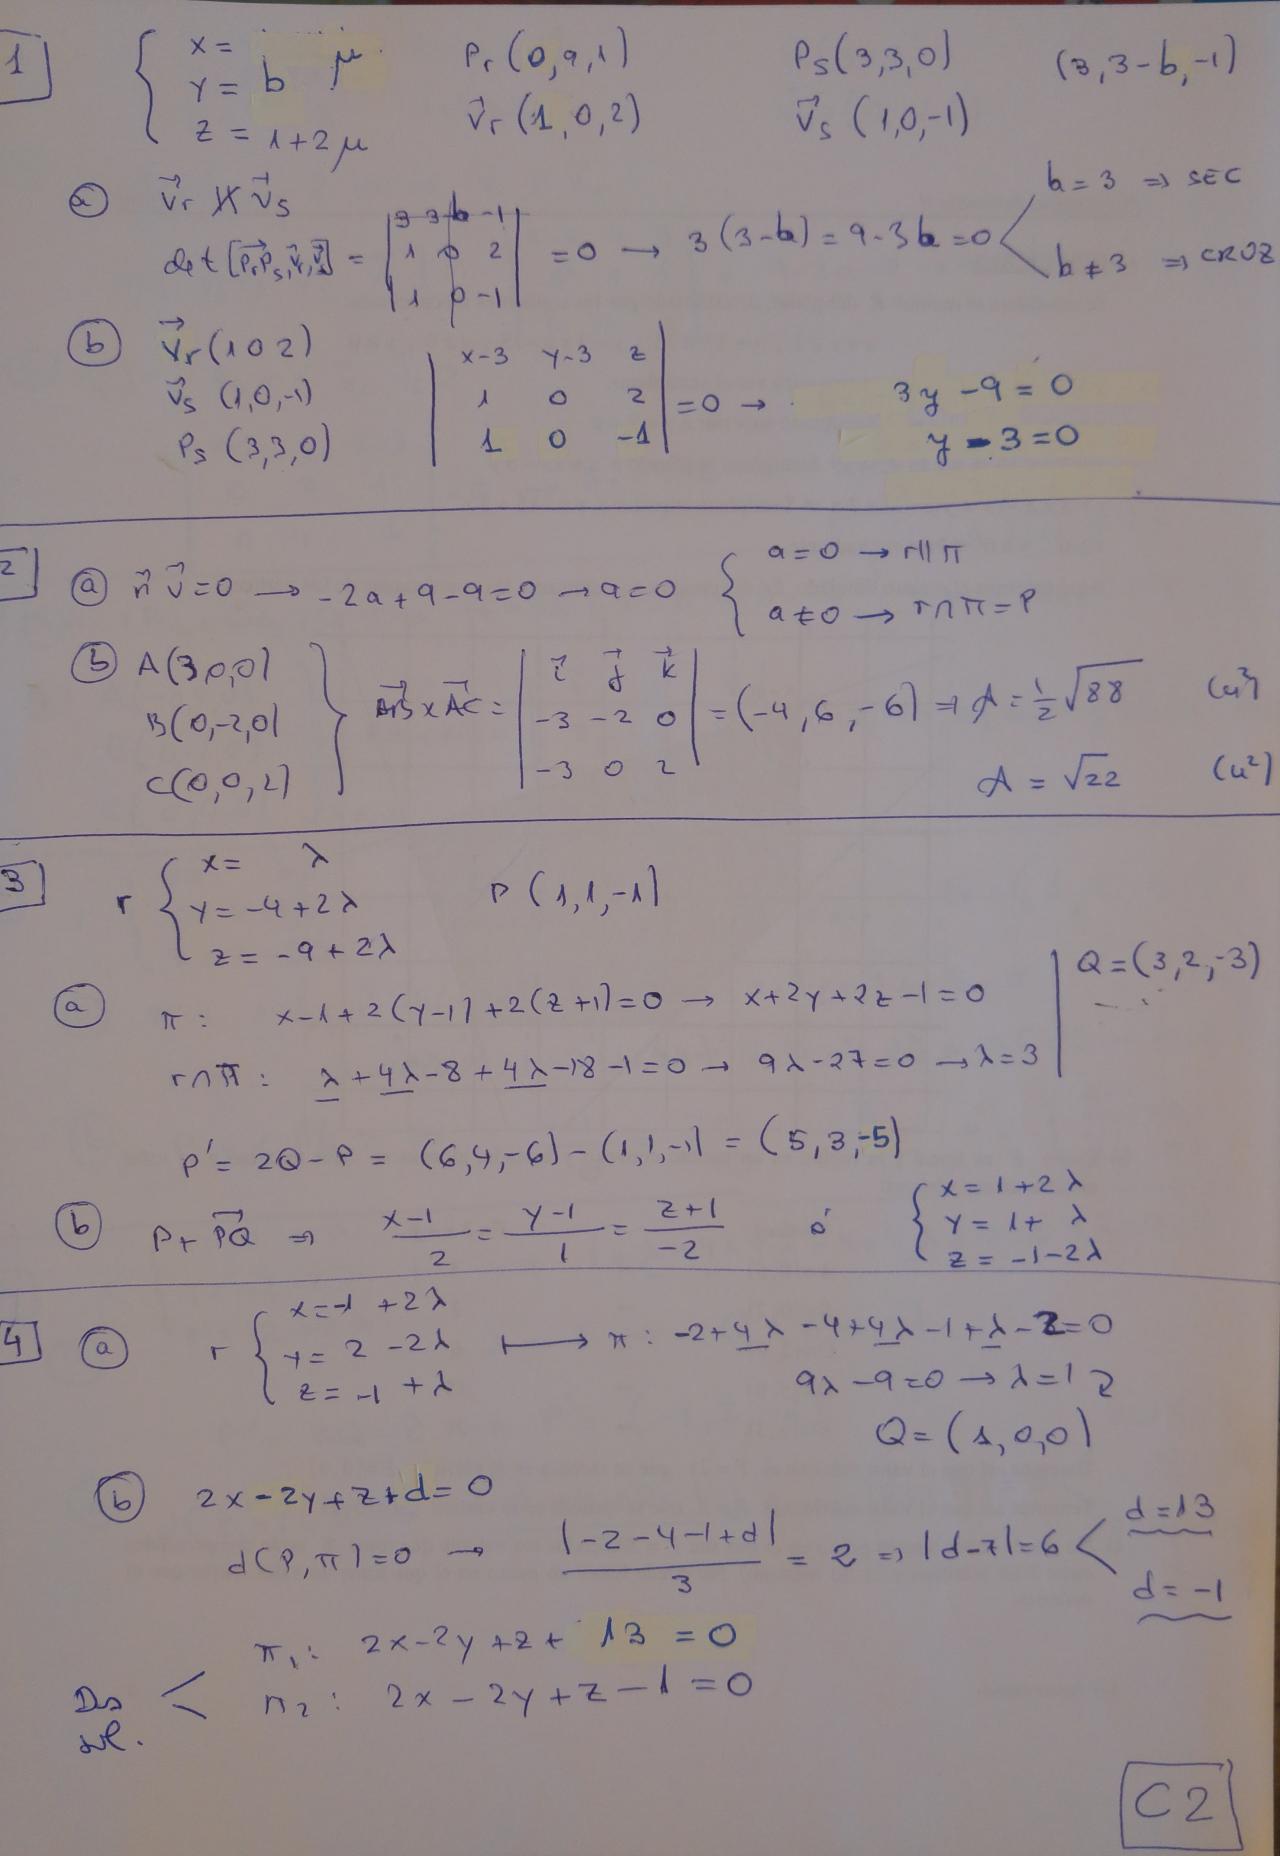 1
x =
y = b μ
z = 1+2μ
Pr (0,a,1)
v⃗r (1,0,2)
Ps (3,3,0)
v⃗s (1,0,-1)
(3,3-b,-1)
a v⃗r ∦ v⃗s
det [PrPs, v⃗r, v⃗s] = | 3 3-b -1 |
| 1 0 2 | = 0 → 3(3-b) = 9-3b = 0
| 1 0 -1 |
b = 3 ⇒ SEC
b ≠ 3 ⇒ CRUZ
b v⃗r (1 0 2)
v⃗s (1,0,-1)
Ps (3,3,0)
| x-3 y-3 z |
| 1 0 2 | = 0 →
| 1 0 -1 |
3y - 9 = 0
y - 3 = 0
2
a n⃗ v⃗ = 0 → -2a+9-9=0 → a=0
a=0 → r∥π
a≠0 → r∩π=P
b A(3,0,0)
B(0,-2,0)
C(0,0,2)
AB⃗ x AC⃗ = | i⃗ j⃗ k⃗ |
| -3 -2 0 | = (-4,6,-6) ⇒ A = 1/2 √88 (u²)
| -3 0 2 |
A = √22 (u²)
3
r
x = λ
y = -4+2λ
z = -9+2λ
P (1,1,-1)
a π: x-1+2(y-1)+2(z+1)=0 → x+2y+2z-1=0
r∩π: λ+4λ-8+4λ-18-1=0 → 9λ-27=0 → λ=3
Q=(3,2,-3)
P' = 2Q-P = (6,4,-6) - (1,1,-1) = (5,3,-5)
b P + PQ⃗ ⇒ (x-1)/2 = (y-1)/1 = (z+1)/-2 ó
x = 1+2λ
y = 1+ λ
z = -1-2λ
4
a r
x=-1 +2λ
y= 2 -2λ
z= -1 +λ
⟼ π: -2+4λ-4+4λ-1+λ-2=0
9λ-9=0 → λ=1
Q=(1,0,0)
b 2x-2y+z+d=0
d(P,π)=0 → |-2-4-1+d|/3 = 2 ⇒ |d-7|=6
d=13
d=-1
π₁: 2x-2y+z+ 13 = 0
π₂: 2x-2y+z-1 = 0
Dos
sol.
C2